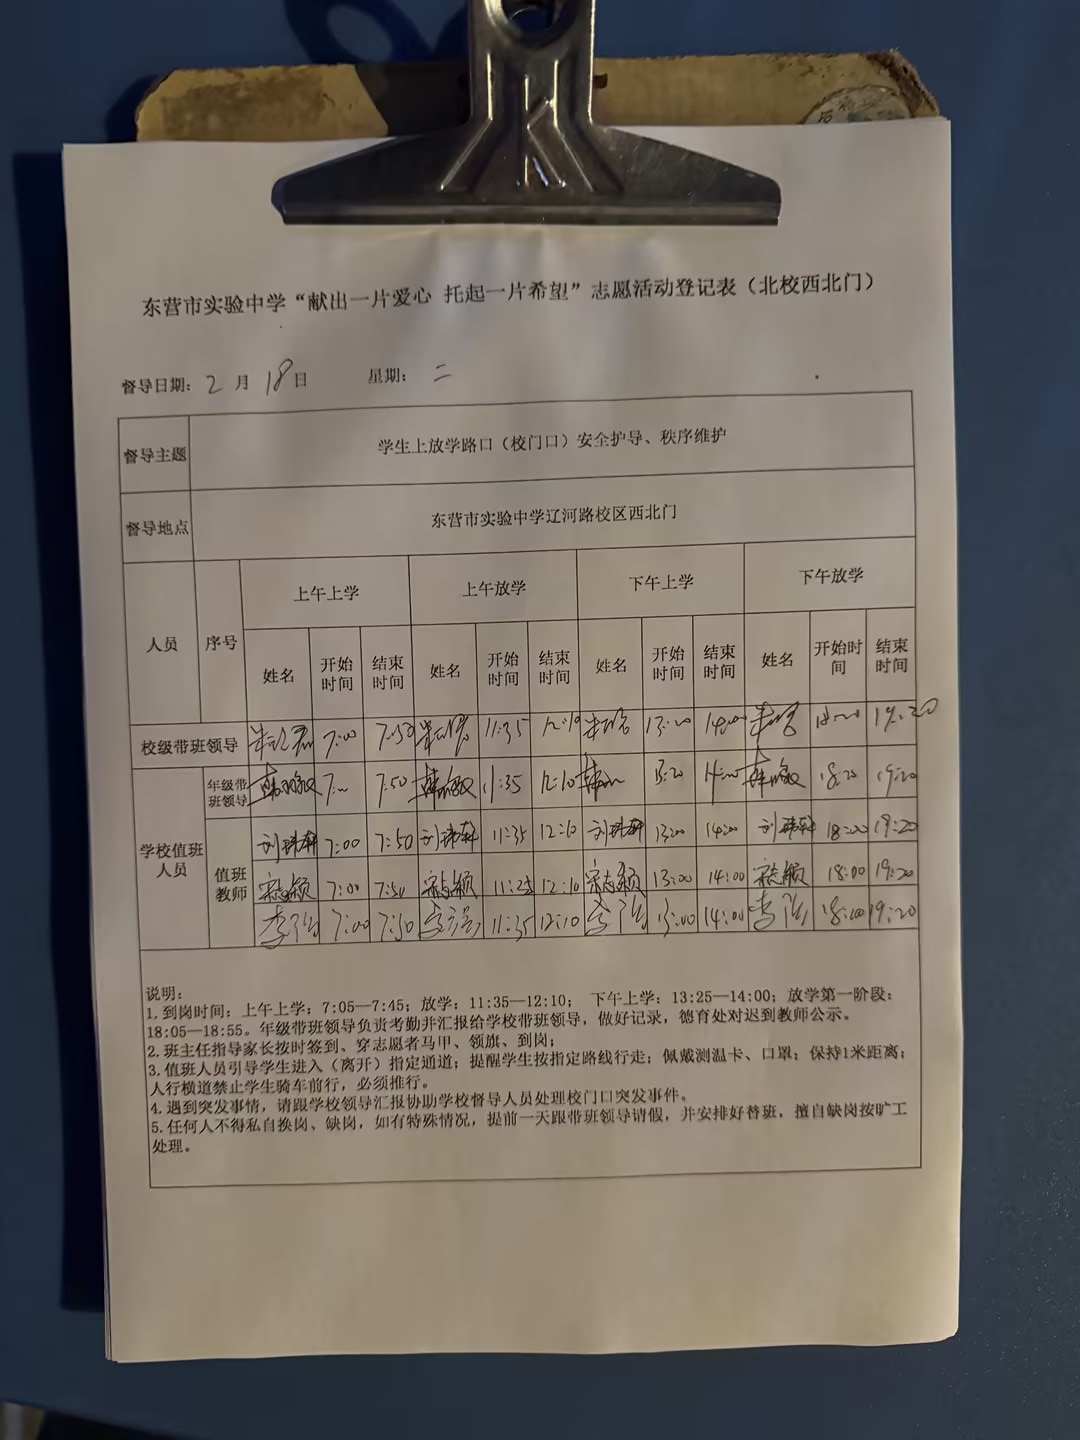 东营市实验中学“献出一片爱心 托起一片希望”志愿活动登记表（北校西北门）
督导日期：2月18日 星期：二
督导主题 学生上放学路口（校门口）安全护导、秩序维护
督导地点 东营市实验中学辽河路校区西北门
人员 序号 上午上学 上午放学 下午上学 下午放学
姓名 开始时间 结束时间 姓名 开始时间 结束时间 姓名 开始时间 结束时间 姓名 开始时间 结束时间
校级带班领导 7:00 7:50 11:35 12:10 13:20 14:00 19:20
学校值班人员 年级带班领导 7:50 11:35 12:10 13:20 14:00 18:20 19:20
值班教师 刘琲轩 7:00 7:50 刘琲轩 11:35 12:10 刘琲轩 13:00 14:00 刘琲轩 18:00 19:20
宋志颖 7:00 7:50 宋志颖 11:25 12:10 宋志颖 13:00 14:00 宋志颖 18:00 19:20
李强 7:00 7:50 李强 11:35 12:10 李强 13:00 14:00 李强 18:00 19:20
说明：
1.到岗时间：上午上学：7:05—7:45；放学：11:35—12:10； 下午上学：13:25—14:00；放学第一阶段：
18:05—18:55。年级带班领导负责考勤并汇报给学校带班领导，做好记录，德育处对迟到教师公示。
2.班主任指导家长按时签到、穿志愿者马甲、领旗、到岗；
3.值班人员引导学生进入（离开）指定通道；提醒学生按指定路线行走；佩戴测温卡、口罩；保持1米距离；
人行横道禁止学生骑车前行，必须推行。
4.遇到突发事情，请跟学校领导汇报协助学校督导人员处理校门口突发事件。
5.任何人不得私自换岗、缺岗，如有特殊情况，提前一天跟带班领导请假，并安排好替班，擅自缺岗按旷工
处理。